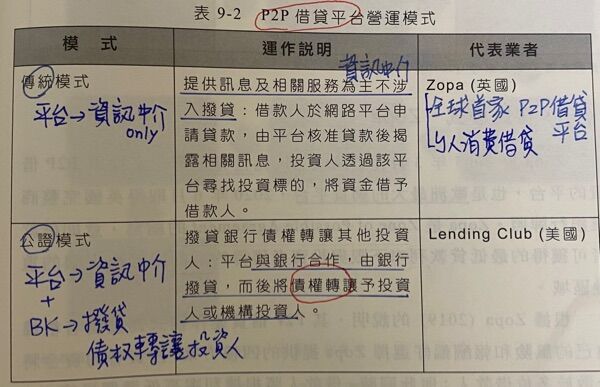 表 9-2 P2P 借貸平台營運模式
模式 運作說明 代表業者
資訊中介
傳統模式
平台→資訊中介
only
提供訊息及相關服務為主不涉
入撥貸：借款人於網路平台申
請貸款，由平台核准貸款後揭
露相關訊息，投資人透過該平
台尋找投資標的，將資金借予
借款人。
Zopa (英國)
全球首家 P2P借貸
平台
人消費借貸
公證模式
平台→資訊中介
+
BK→撥貸
債权轉讓投資人
撥貸銀行債權轉讓其他投資
人：平台與銀行合作，由銀行
撥貸，而後將債權轉讓予投資
人或機構投資人。
Lending Club (美國)